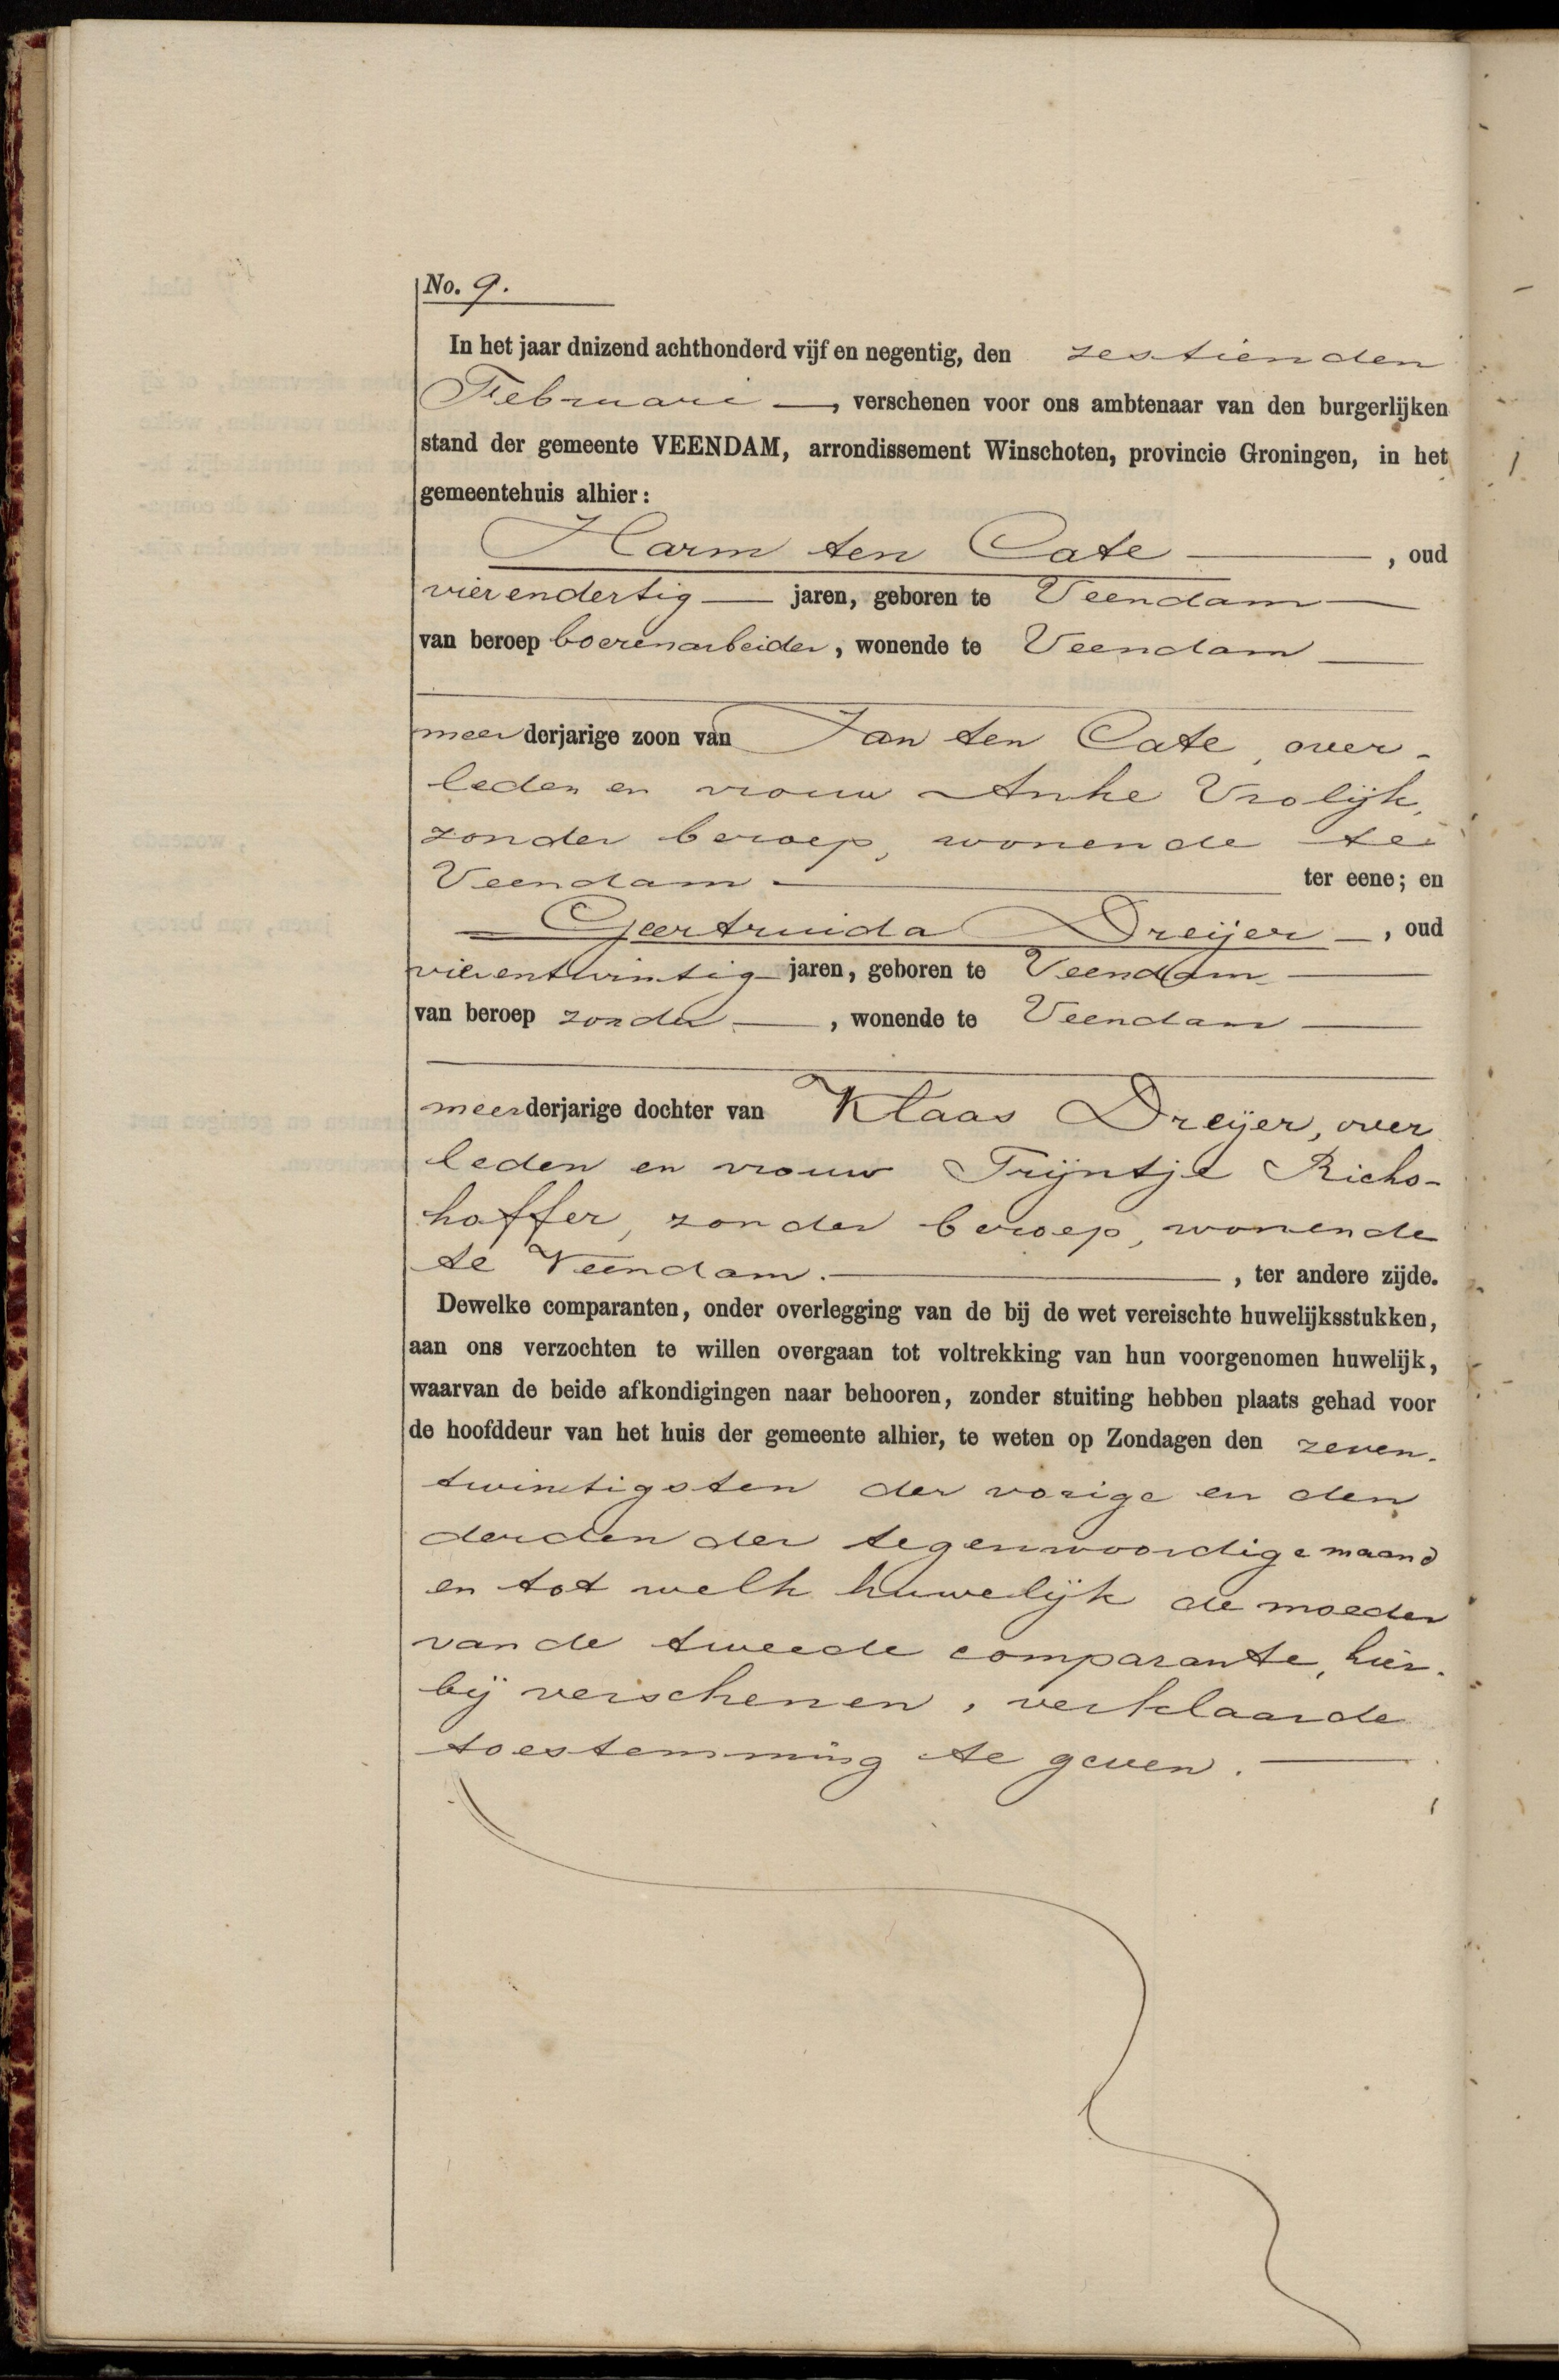 No. 9.
In het jaar duizend achthonderd vijf en negentig, den zestienden
Februari —, verschenen voor ons ambtenaar van den burgerlijken
stand der gemeente VEENDAM, arrondissement Winschoten, provincie Groningen, in het
gemeentehuis alhier:
Harm ten Cate —, oud
vierendertig — jaren, geboren te Veendam —
van beroep boerenarbeider, wonende te Veendam —
meerderjarige zoon van Jan ten Cate, over-
leden en vrouw Anke Vrolijk,
zonder beroep, wonende te
Veendam — ter eene; en
— Geertruida Dreijer —, oud
vierentwintig jaren, geboren te Veendam —
van beroep zonder —, wonende te Veendam —
meerderjarige dochter van Klaas Dreijer, over
leden en vrouw Trijntje Richs-
haffer, zonder beroep, wonende
te Veendam. —, ter andere zijde.
Dewelke comparanten, onder overlegging van de bij de wet vereischte huwelijksstukken,
aan ons verzochten te willen overgaan tot voltrekking van hun voorgenomen huwelijk,
waarvan de beide afkondigingen naar behooren, zonder stuiting hebben plaats gehad voor
de hoofddeur van het huis der gemeente alhier, te weten op Zondagen den zeven-
twintigsten der vorige en den
derden der tegenwoordige maand
en tot welk huwelijk de moeder
van de tweede comparante, hier-
bij verschenen, verklaarde
toestemming te geven. —